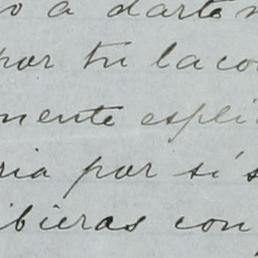 o a darte
por tu laco
mente espli
ria por sí s
ibieras con